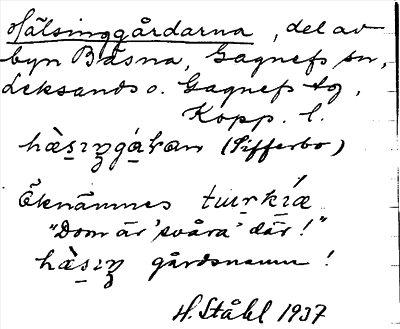 Hälsinggårdarna, del av
byn Båsna, Gagnefs sn,
Leksands o. Gagnefs tg,
Kopp. l.
hàsıŋgáran (Sifferbo)
Öknämnes turkíæ
"Dom är 'svåra' där!"
hàsıŋ gårdsnamn!
H. Ståhl 1937